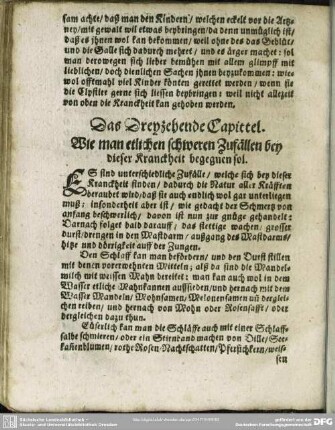 sam achte/ daß man den Kindern/ welchen eckelt vor die Artz-
ney/mit gewalt wil etwas beybringen/da denn unmüglich ist/
daß es ihnen wol kan bekommen/ weil ohne des das Geblüte/
und die Galle sich dadurch mehret/ und es ärger machet: sol
man derowegen sich lieber bemühen mit allem glimpff mit
lieblichen/ doch dienlichen Sachen ihnen beyzukommen: wie-
wol offtemahl viel Kinder könten gerettet werden/ wenn sie
die Clystier gerne sich liessen beybringen: weil nicht allezeit
von oben die Kranckheit kan gehoben werden.
Das Dreyzehende Capittel.
Wie man etlichen schweren Zufällen bey
dieser Kranckheit begegnen sol.
ES sind unterschiedliche Zufälle/ welche sich bey dieser
Kranckheit finden/ dadurch die Natur aller Kräfften
beraubet wird/daß sie auch endlich wol gar unterliegen
muß: insonderheit aber ist/ wie gedacht der Schmertz von
anfang beschwerlich/ davon ist nun zur gnüge gehandelt:
Darnach folget bald darauff/ das stettige wachen/ grosser
durst/drengen in den Mastdarm/ außgang des Mastdarms/
hitze und dörrigkeit auff der Zungen.
Den Schlaff kan man befördern/ und den Durst stillen
mit denen vorerwehnten Mitteln; als da sind die Mandel-
milch mit weissen Mahn bereitet: man kan auch wol in dem
Wasser etliche Mahnkannen aufsieden/und hernach mit dem
Wasser Mandeln/ Mohnsamen/Melonensamen uñ derglei-
chen reiben/ und hernach von Mohn oder Rosensafft/ oder
dergleichen dazu thun.
Euserlich kan man die Schläffe auch mit einer Schlaff-
salbe schmieren/ oder ein Stirnband machen von Dille/
rothe Rosen/Nachtschatten/ Pfersichkern/ weis-
sen